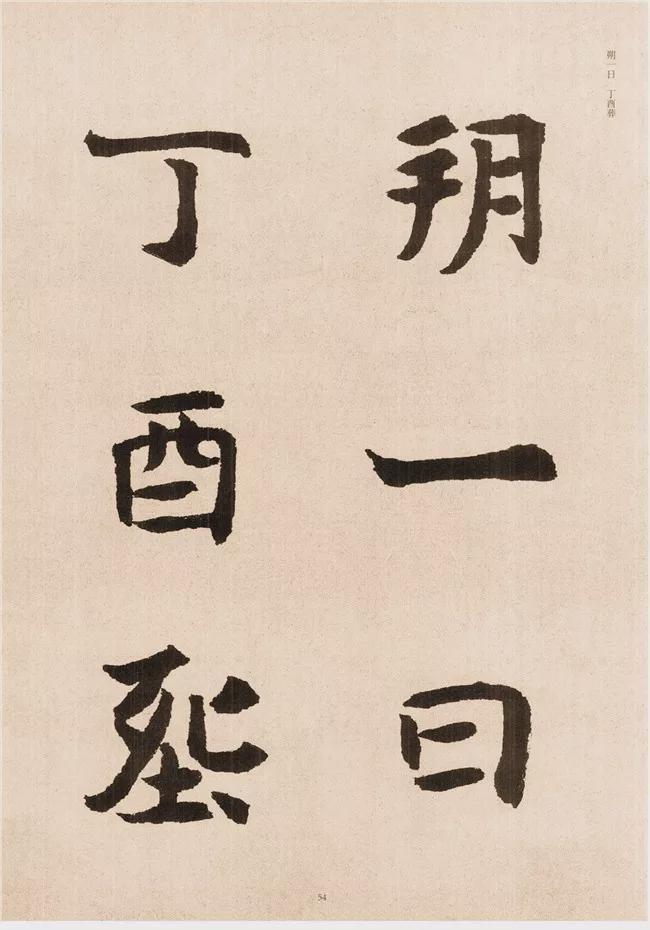 朔一日 丁酉葬
朔一日
丁酉塟
54